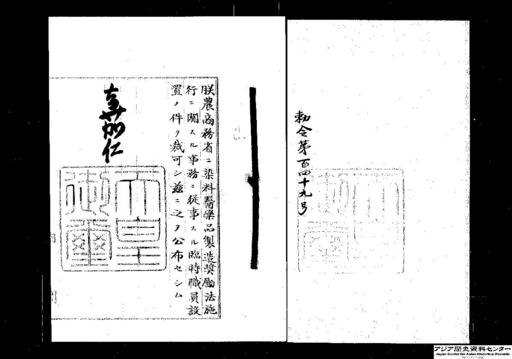 勅令第百四十九号
朕農商務省ニ染料醫藥品製造奬勵法施
行ニ關スル事務ニ從事スル臨時職員設
置ノ件ヲ裁可シ茲ニ之ヲ公布セシム
嘉仁
天皇
御璽
アジア歴史資料センター
Japan Center for Asian Historical Records